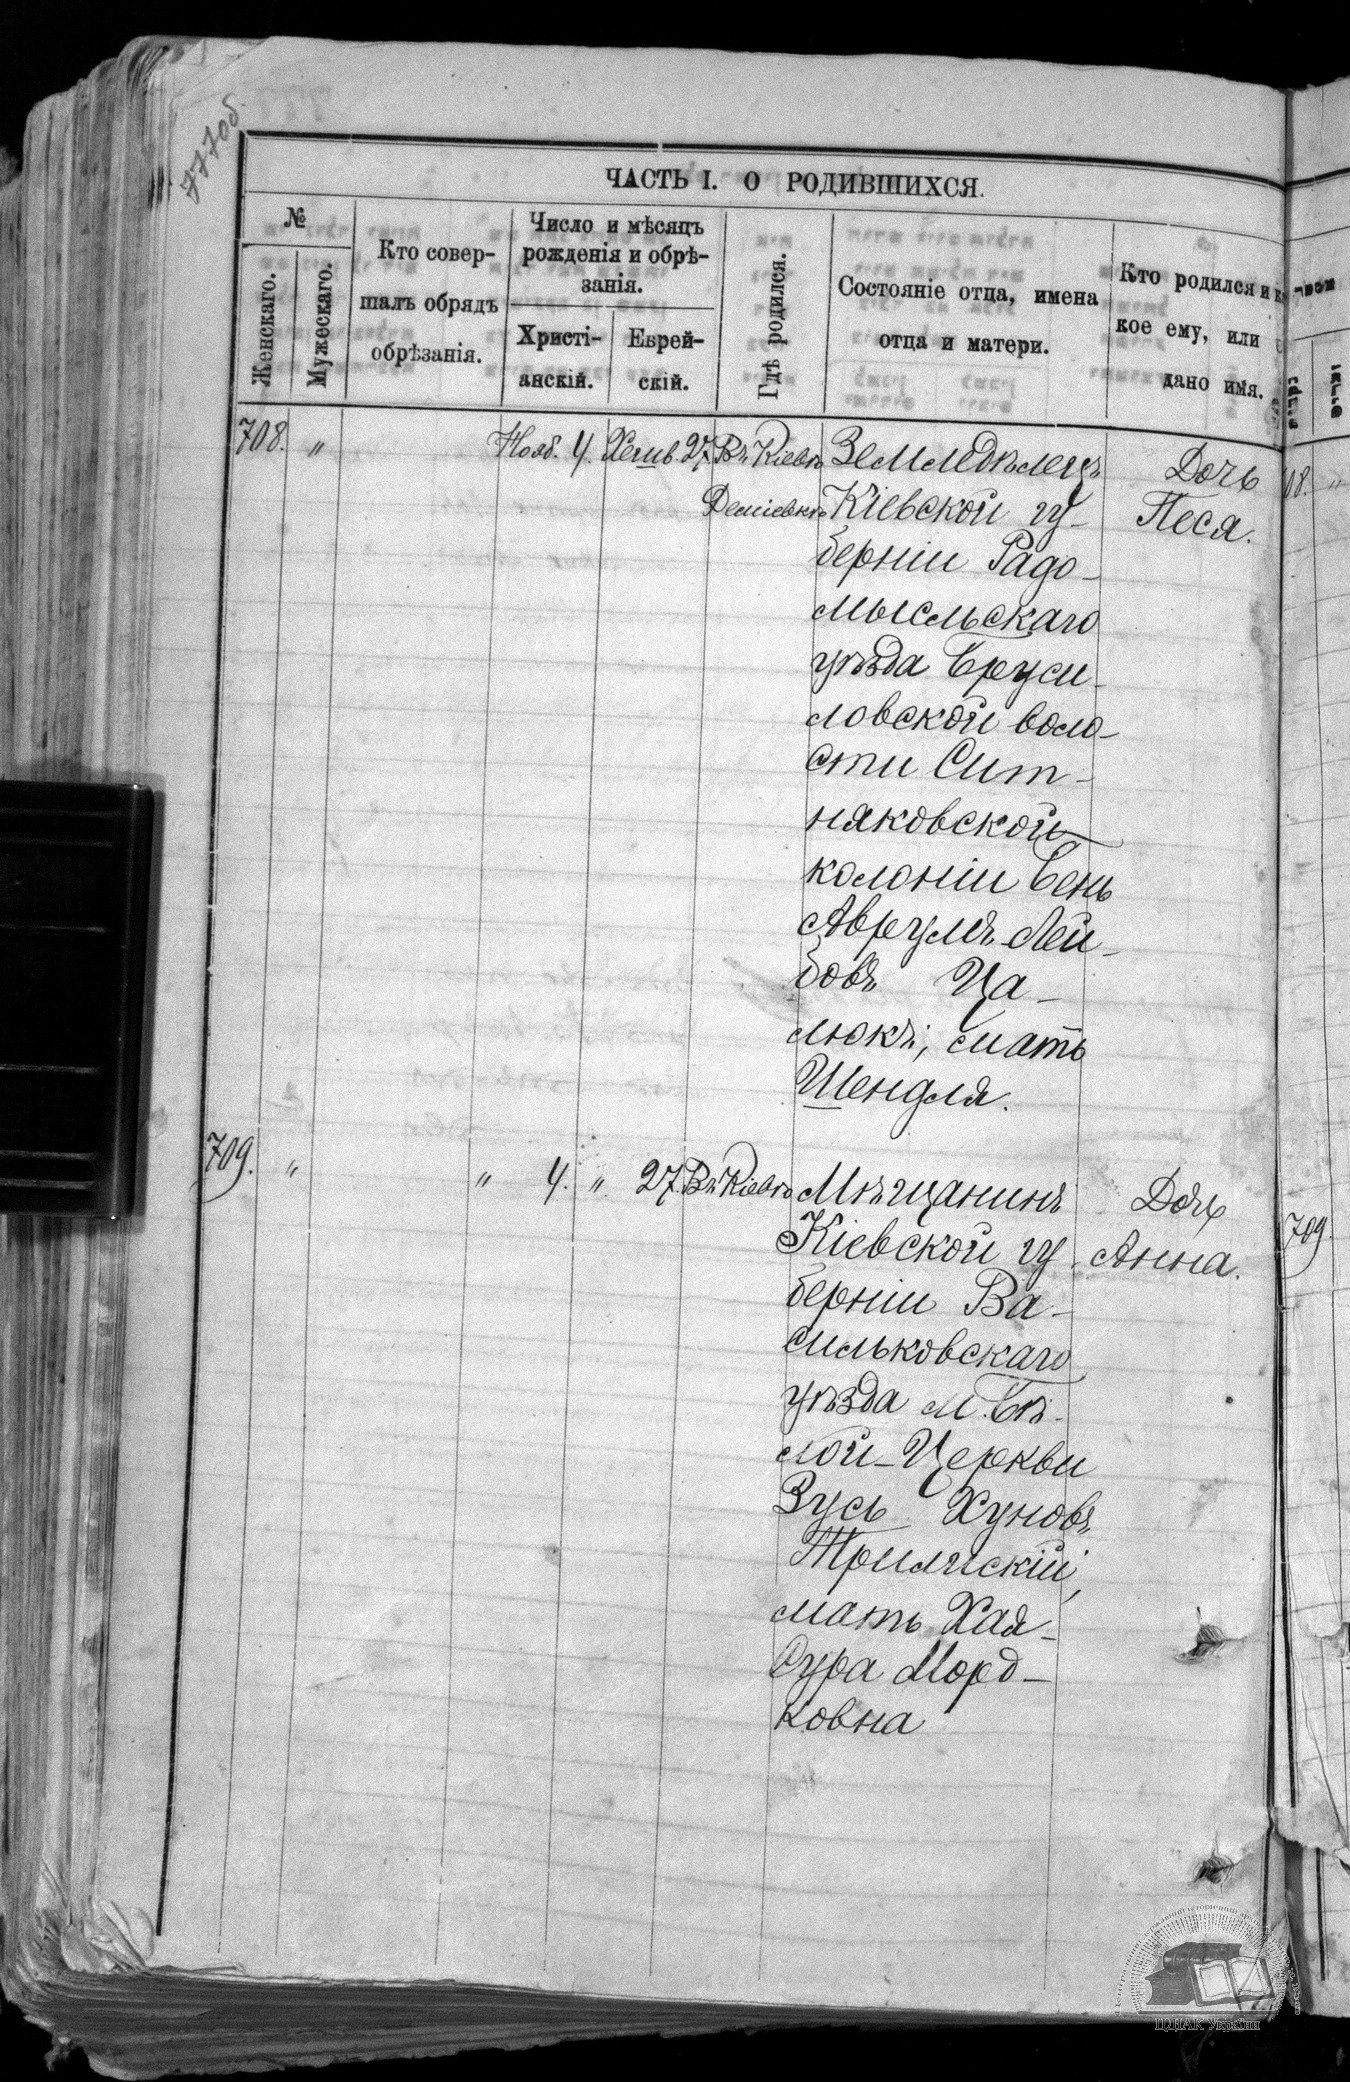 777об
ЧАСТЬ I. О РОДИВШИХСЯ.
№
Женскаго.
Мужескаго.
Кто совер-
шалъ обрядъ
обрѣзанія.
Число и мѣсяцъ
рожденія и обрѣ-
занія.
Христі-
анскій.
Еврей-
скій.
Гдѣ родился.
Состояніе отца, имена
отца и матери.
Кто родился и ка
кое ему, или
дано имя.
708. " Нояб. 4. Хешв. 27. Въ Кіевѣ Земледѣлецъ Дочь
Деміевкѣ Кіевской гу- Песя.
берніи Радо-
мысльскаго
уѣзда Бруси-
ловской воло-
сти Сит-
няковской
колоніи Бень
Аврумъ Лей-
бовъ Ца-
люкъ, мать
Шендля.
709. " " 4. " 27. Въ Кіевѣ Мѣщанинъ Дочь
Кіевской гу- Анна.
берніи Ва-
сильковскаго
уѣзда м. Бѣ-
лой-Церкви
Зусь Хуновъ
Трилискій,
мать Хая-
Сура Морд-
ковна
08. "
709.
ЦДІАК України